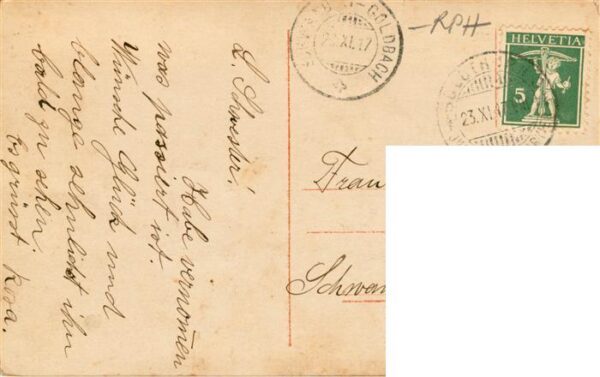 L. Schwester!
Habe vernomen
was passiert ist.
Wünsche Glück und
blange sehnlichst ihn
bald zu sehen.
Es grüsst Rosa.
-RPH
HELVETIA
5
GOLDBACH
23.XI.17
23.XI.17
Frau
Schwan